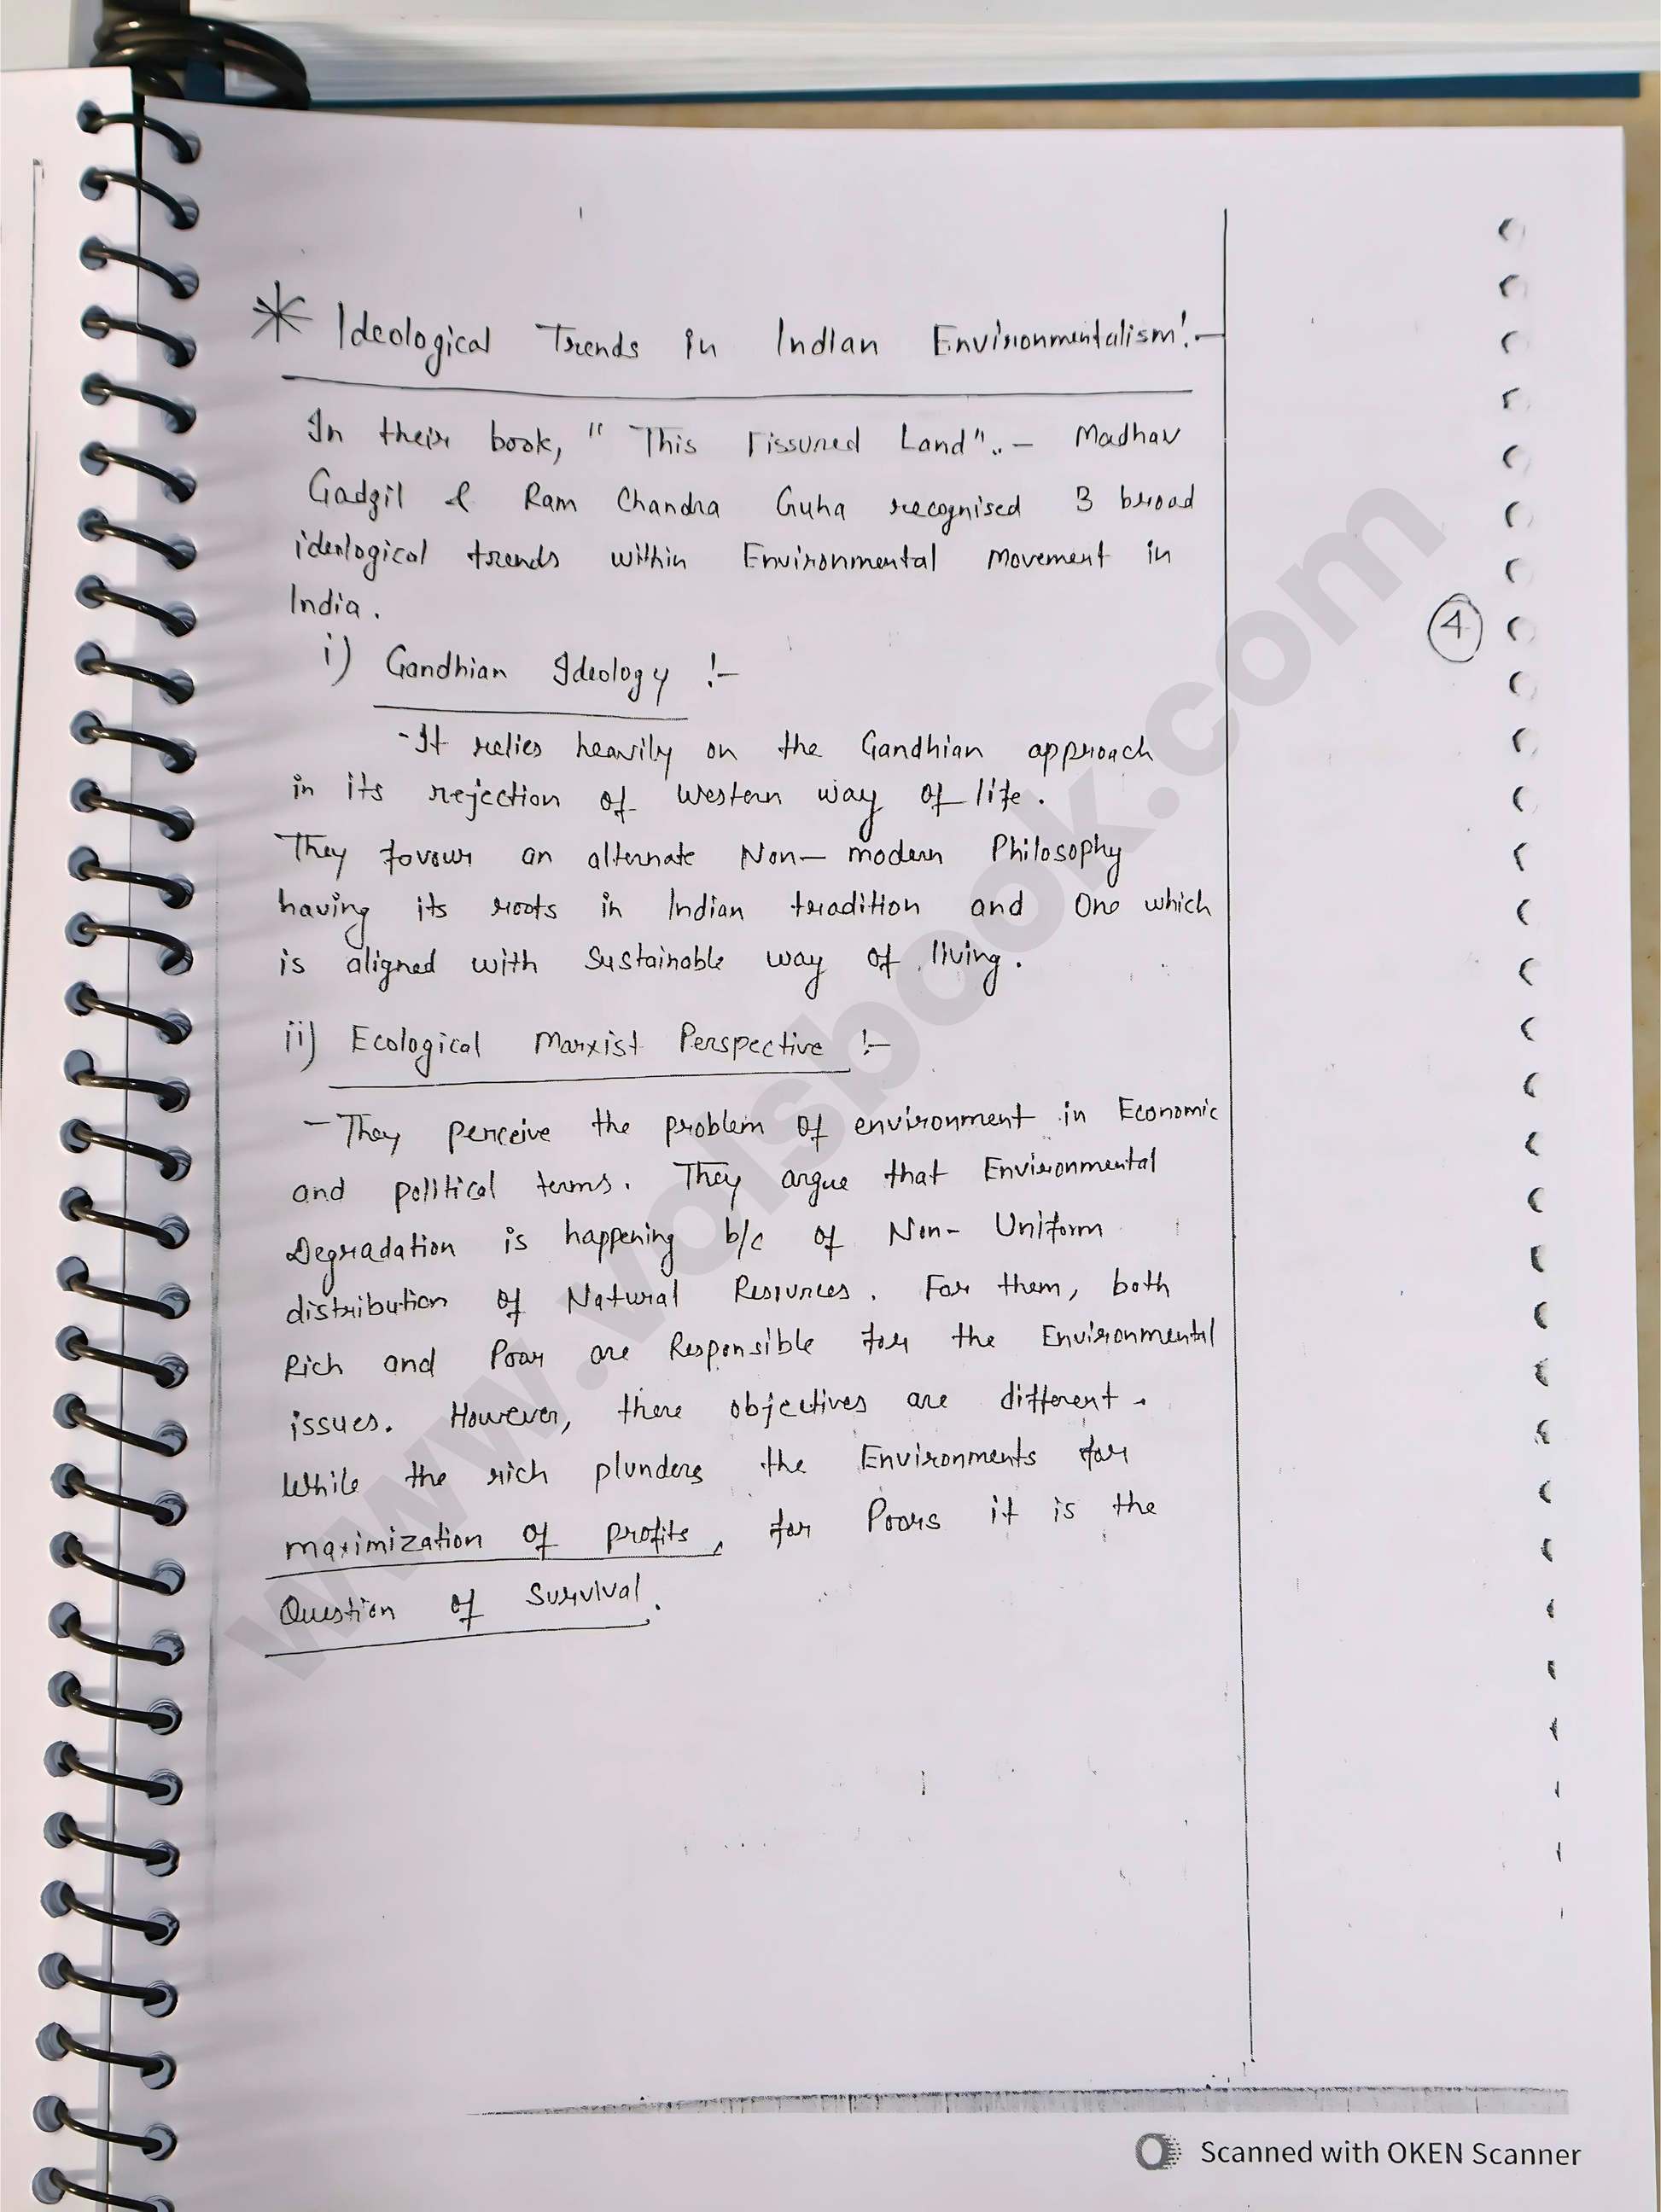 * Ideological Trends in Indian Environmentalism:-
In their book, " This Fissured Land".. – Madhav
Gadgil & Ram Chandra Guha recognised 3 broad
ideological trends within Environmental Movement in
India.
i) Gandhian Ideology :-
- It relies heavily on the Gandhian approach
in its rejection of Western way of life.
They favour an alternate Non-modern Philosophy
having its roots in Indian tradition and One which
is aligned with Sustainable way of living.
ii) Ecological Marxist Perspective :-
- They perceive the problem of environment in Economic
and political terms. They argue that Environmental
Degradation is happening b/c of Non-Uniform
distribution of Natural Resources. For them, both
Rich and Poor are Responsible for the Environmental
issues. However, there objectives are different.
While the rich plunders the Environments for
maximization of profits, for Poors it is the
Question of Survival.
4
www.volsbook.com
Scanned with OKEN Scanner